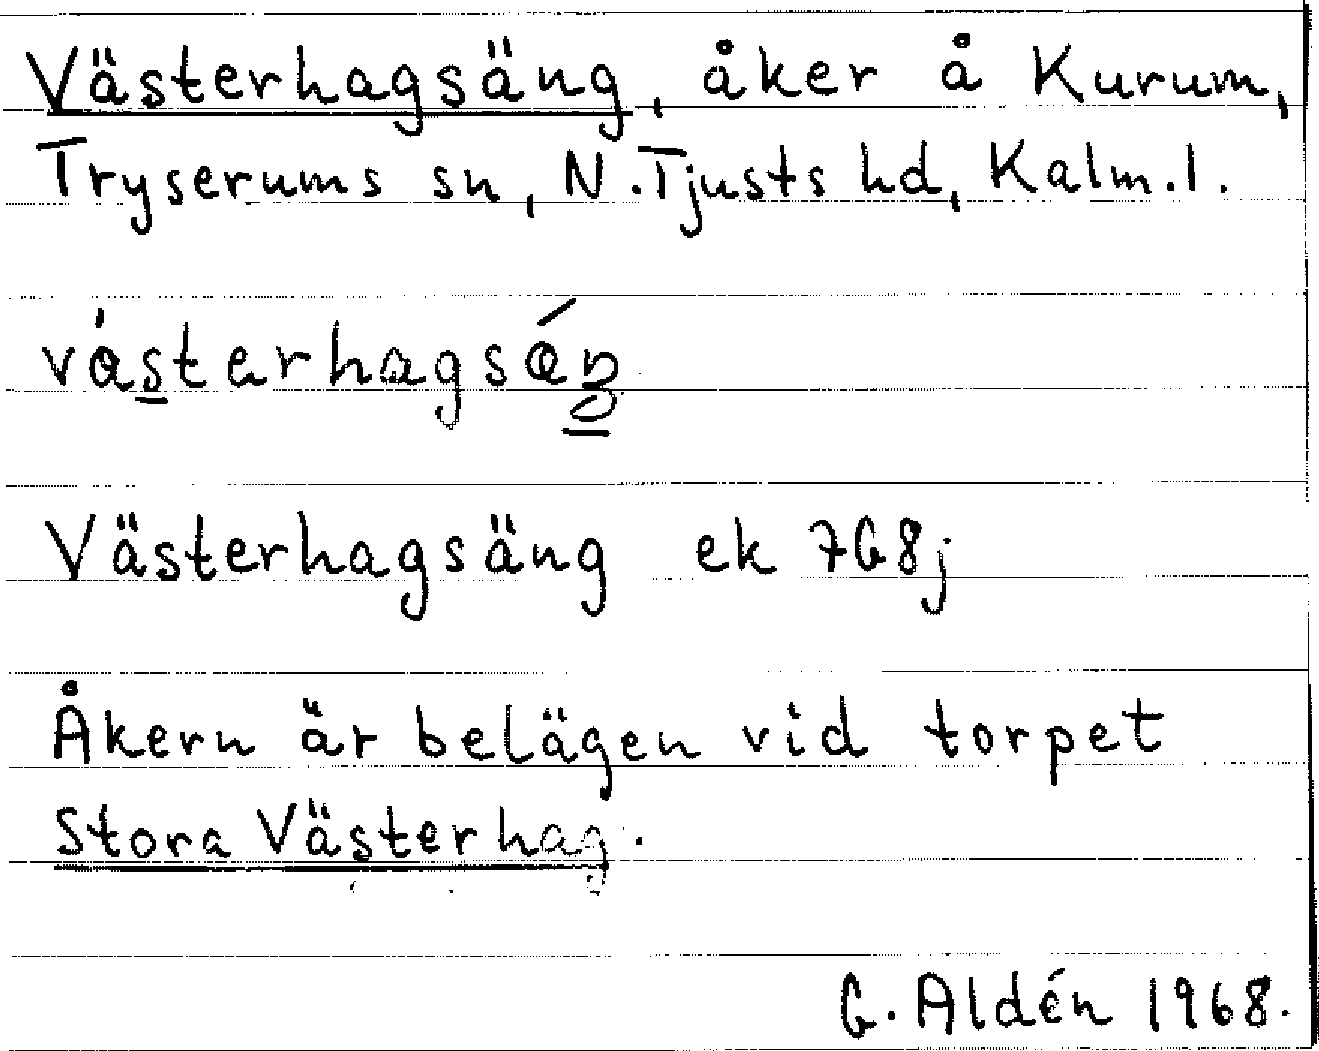 Västerhagsäng, åker å Kurum,
Tryserums sn, N. Tjusts hd, Kalm.l.
Västerhagsäng ek 7G8j
Åkern är belägen vid torpet
Stora Västerhag.
G. Aldén 1968.